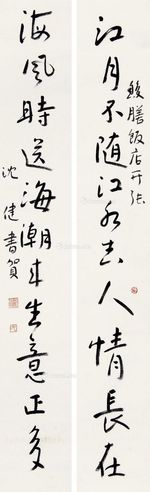 膳飯店开張
江月不随江水去人情長在
海風時送海潮来生意正多
沈健書賀